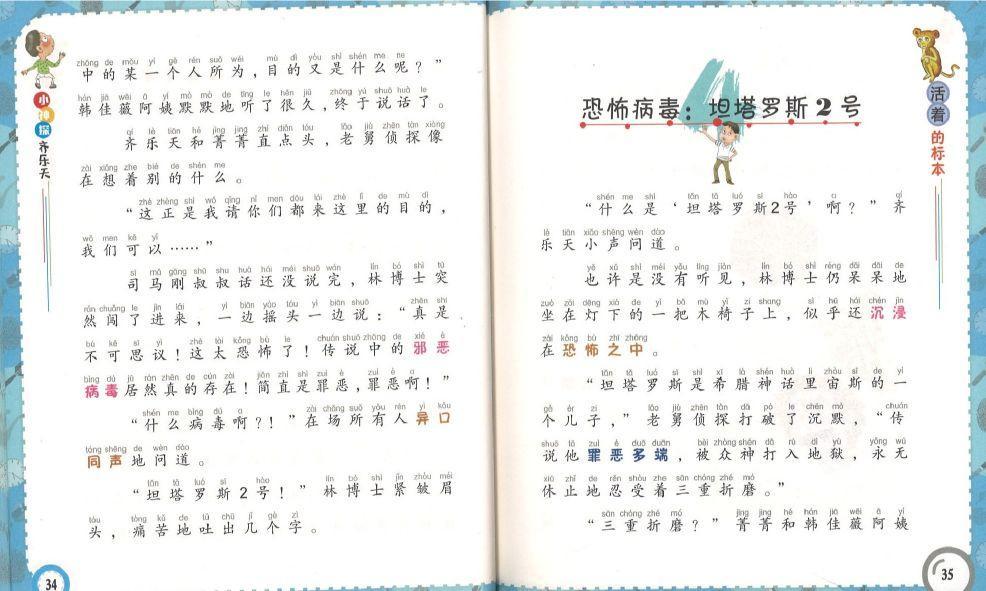 小神探齐乐天
中的某一个人所为，目的又是什么呢？”
韩佳薇阿姨默默地听了很久，终于说话了。
齐乐天和菁菁直点头，老舅侦探像
在想着别的什么。
“这正是我请你们都来这里的目的，
我们可以……”
司马刚叔叔话还没说完，林博士突
然闯了进来，一边摇头一边说：“真是
不可思议！这太恐怖了！传说中的邪恶
病毒居然真的存在！简直是罪恶，罪恶啊！”
“什么病毒啊？！”在场所有人异口
同声地问道。
“坦塔罗斯2号！”林博士紧皱眉
头，痛苦地吐出几个字。
34
活着的标本
4
恐怖病毒：坦塔罗斯2号
“什么是‘坦塔罗斯2号’啊？”齐
乐天小声问道。
也许是没有听见，林博士仍呆呆地
坐在灯下的一把木椅子上，似乎还沉浸
在恐怖之中。
“坦塔罗斯是希腊神话里宙斯的一
个儿子，”老舅侦探打破了沉默，“传
说他罪恶多端，被众神打入地狱，永无
休止地忍受着三重折磨。”
“三重折磨？”菁菁和韩佳薇阿姨
35